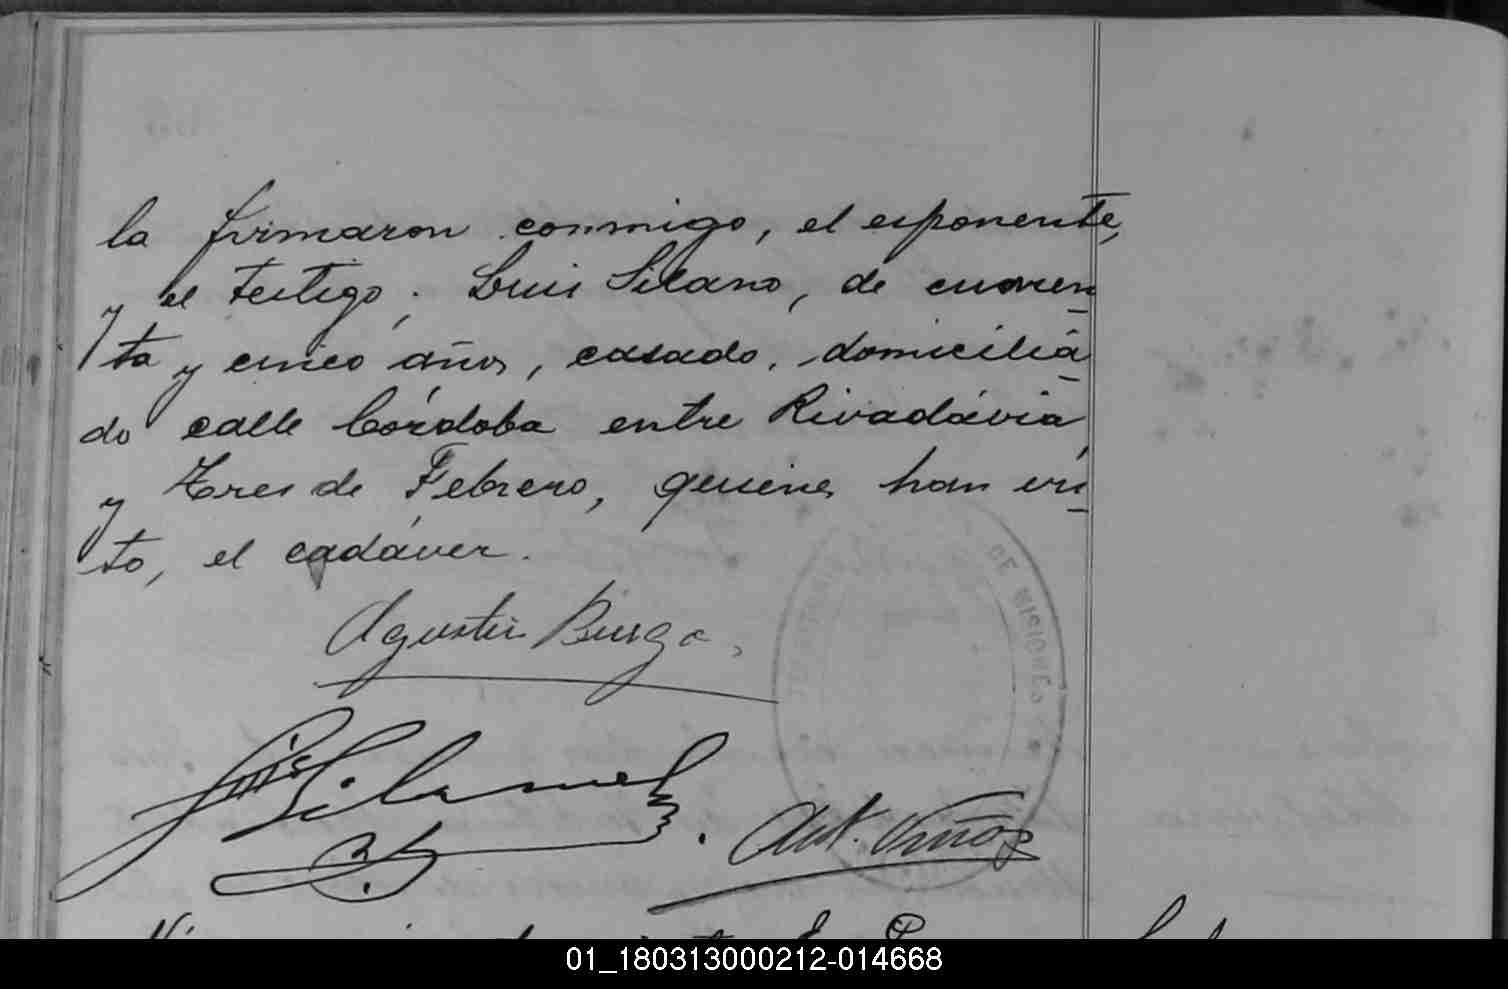 la firmaron conmigo, el exponente,
y el testigo, Luis Silano, de cuaren
ta y cinco años, casado, domicilia
do calle Córdoba entre Rivadávia,
y Tres de Febrero, quienes han vis
to, el cadáver.
Agustin
Luis
Ant.
DE MISIONES
01_180313000212-014668